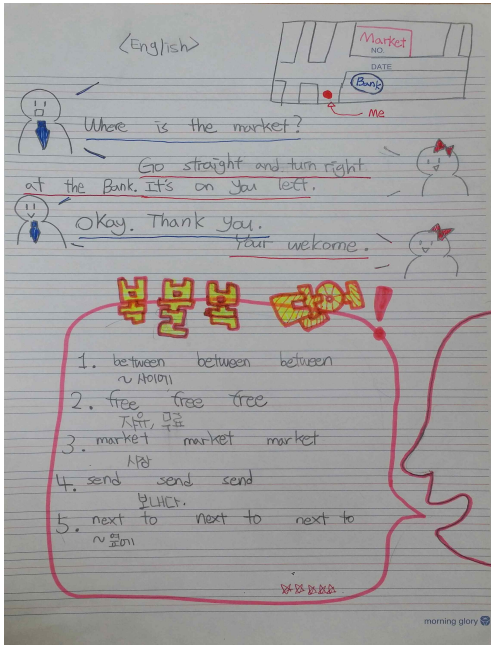 <English>
Market
NO.
DATE
Bank
Me
Where is the market?
Go straight and turn right
at the Bank. It's on you left.
Okay. Thank you.
Your welcome.
복불복 단어!
1. between between between
~ 사이에
2. free free free
자유, 무료
3. market market market
시장
4. send send send
보내다.
5. next to next to next to
~ 옆에
morning glory